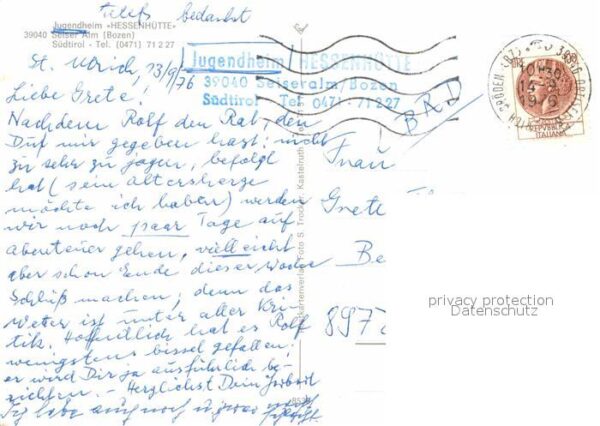 Jugendheim »HESSENHÜTTE«
39040 Seiser Alm (Bozen)
Südtirol - Tel. (0471) 71 2 27
Jugendheim / HESSENHÜTTE
39040 Seiseralm/Bozen
Südtirol Tel. 0471-71 2 27
St. Ulrich, 13/9/76
Liebe Grete!
Nachdem Rolf den Rat, den
Du mir gegeben hast: nicht
zu sehr zu jagen, befolgt
hat (sein Altersherze
möchte ich haben) werden
wir noch paar Tage auf
abenteuer gehen, vielleicht
aber schon Ende dieser Woche
Schluß machen, denn das
Wetter ist unter aller Kri-
tik. Hoffentlich hat es Rolf
wenigstens bissel gefallen;
er wird Dir ja ausführlich be-
richten. - Herzlichst Dein
Ich habe auch noch
BRD
Frau
Grete
Be
897
14-9
1976
ITALIANA
Foto S. Kastelruth
privacy protection
Datenschutz